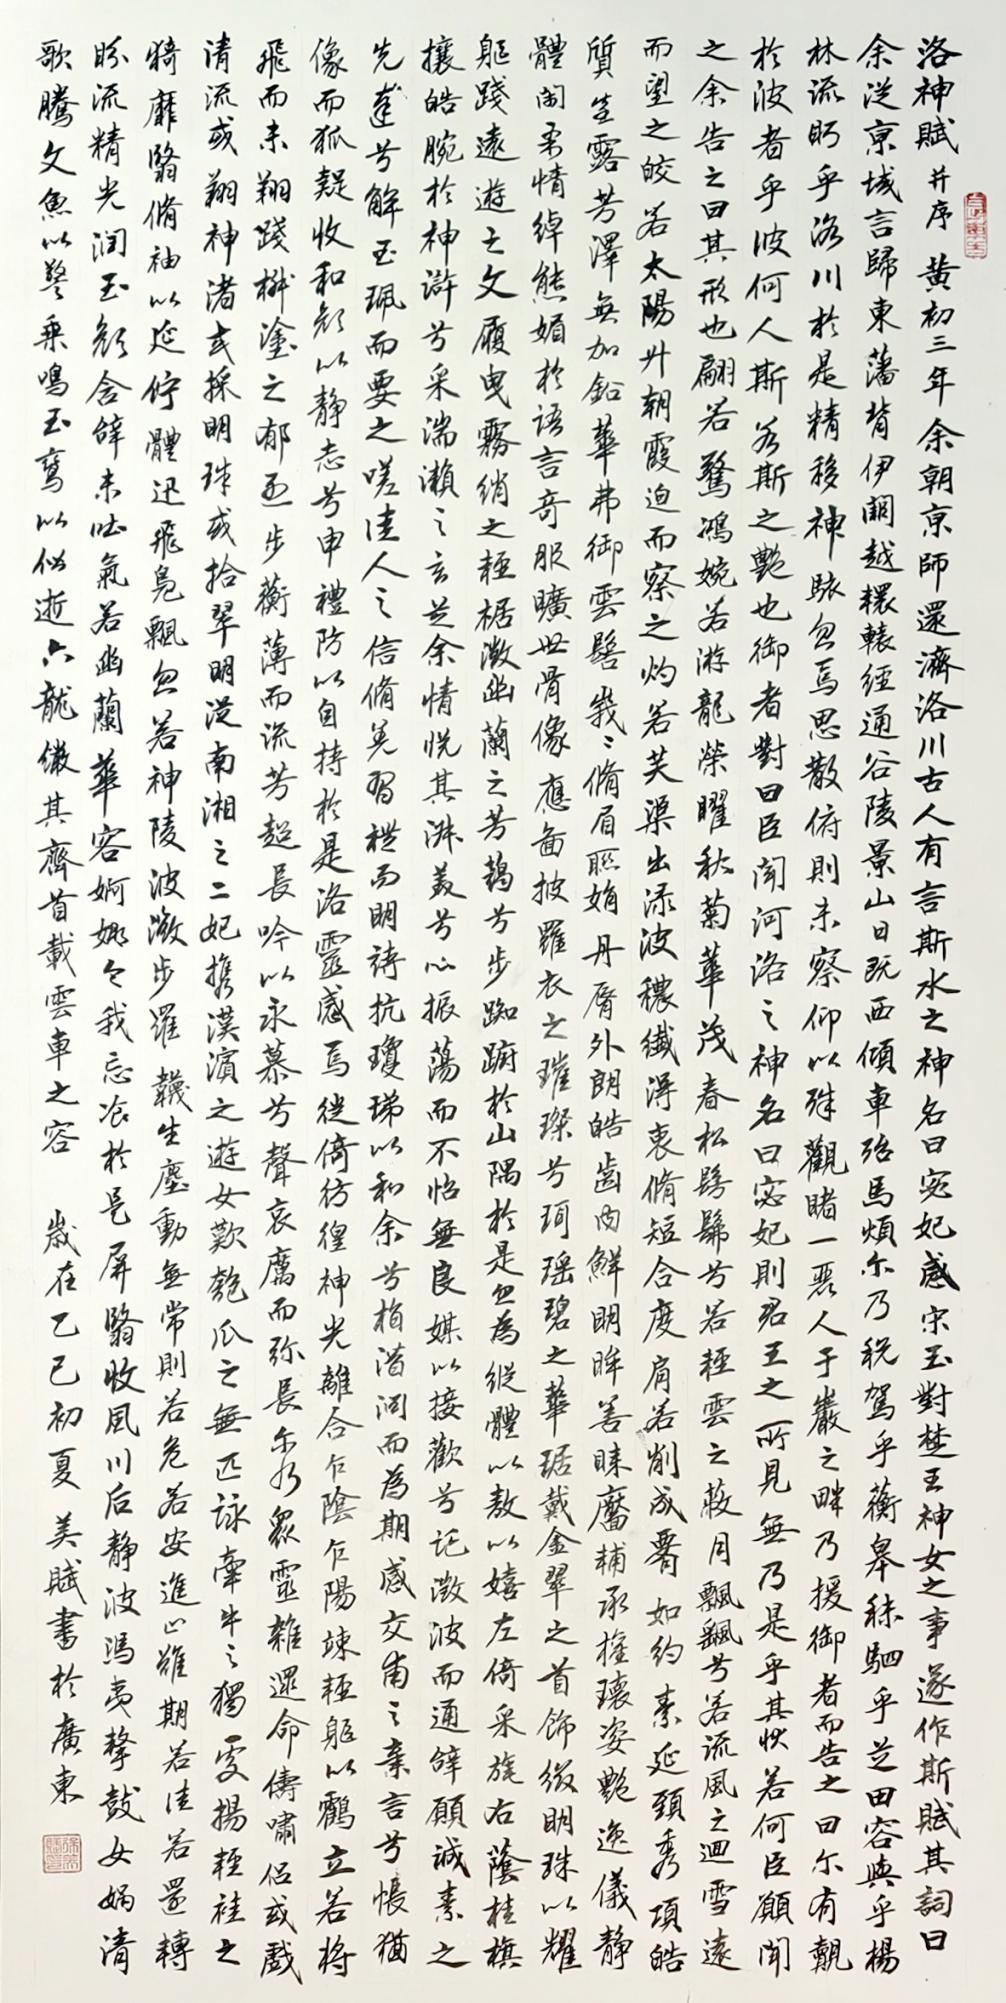 洛神賦并序 黄初三年余朝京師還濟洛川古人有言斯水之神名曰宓妃感宋玉對楚王神女之事遂作斯賦其詞曰
余從京域言歸東藩背伊闕越轘轅經通谷陵景山日既西傾車殆馬煩尒乃税駕乎蘅皋秣駟乎芝田容與乎楊
林流眄乎洛川於是精移神駭忽焉思散俯則未察仰以殊觀睹一麗人于巖之畔乃援御者而告之曰尒有覿
於彼者乎彼何人斯若斯之艷也御者對曰臣聞河洛之神名曰宓妃則君王之所見無乃是乎其狀若何臣願聞
之余告之曰其形也翩若驚鴻婉若游龍榮曜秋菊華茂春松髣髴兮若輕雲之蔽月飄飖兮若流風之迴雪遠
而望之皎若太陽升朝霞迫而察之灼若芙渠出渌波穠纖得衷脩短合度肩若削成腰如約素延頸秀項皓
質呈露芳澤無加鉛華弗御雲髻峩〻脩眉聯娟丹脣外朗皓齒內鮮明眸善睞靨輔承權瓌姿艷逸儀静
體閑柔情綽態媚於語言奇服曠世骨像應圖披羅衣之璀璨兮珥瑶碧之華琚戴金翠之首飾綴明珠以耀
軀踐遠遊之文履曳霧綃之輕裾微幽蘭之芳藹兮步踟躕於山隅於是忽焉縱體以敖以嬉左倚采旄右蔭桂旗
攘皓腕於神滸兮采湍瀨之玄芝余情悦其淑美兮心振蕩而不怡無良媒以接歡兮託微波而通辭願誠素之
先達兮解玉珮而要之嗟佳人之信脩羌習禮而明詩抗瓊珶以和余兮指潛淵而為期感交甫之棄言兮悵猶
像而狐疑收和顔以静志兮申禮防以自持於是洛靈感焉徙倚彷徨神光離合乍陰乍陽竦輕軀以鶴立若將
飛而未翔踐椒塗之郁烈步蘅薄而流芳超長吟以永慕兮聲哀厲而弥長尒乃眾靈雜遝命儔嘯侶或戲
清流或翔神渚或採明珠或拾翠羽從南湘之二妃携漢濱之遊女歎匏瓜之無匹詠牽牛之獨處揚輕袿之
猗靡翳脩袖以延佇體迅飛鳧飄忽若神陵波微步羅韈生塵動無常則若危若安進止難期若往若還轉
眄流精光潤玉顔含辭未吐氣若幽蘭華容婀娜令我忘飡於是屏翳收風川后静波馮夷擊鼓女媧清
歌騰文魚以警乘鳴玉鸞以偕逝六龍儼其齊首載雲車之容 歲在乙巳初夏 美賦書於廣東